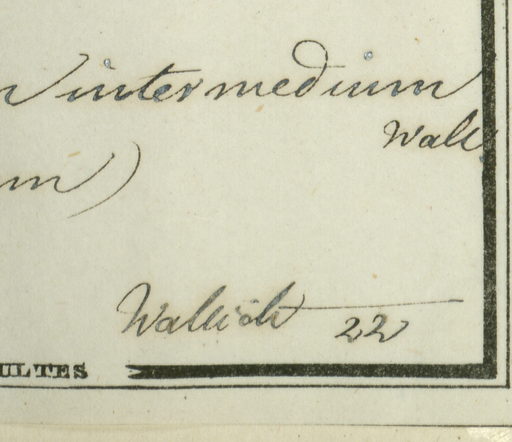 intermedium
Wall.
m)
Wallich 22
ULTES